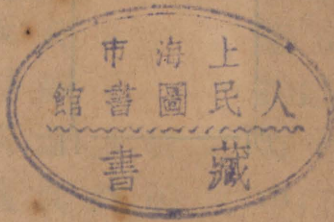 上海市
人民圖書館
藏書